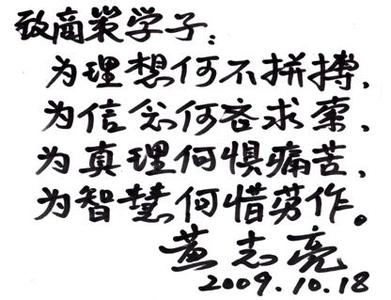 致商策学子:
为理想何不拼搏,
为信念何吝求索,
为真理何惧痛苦,
为智慧何惜劳作。
黄志亮
2009.10.18